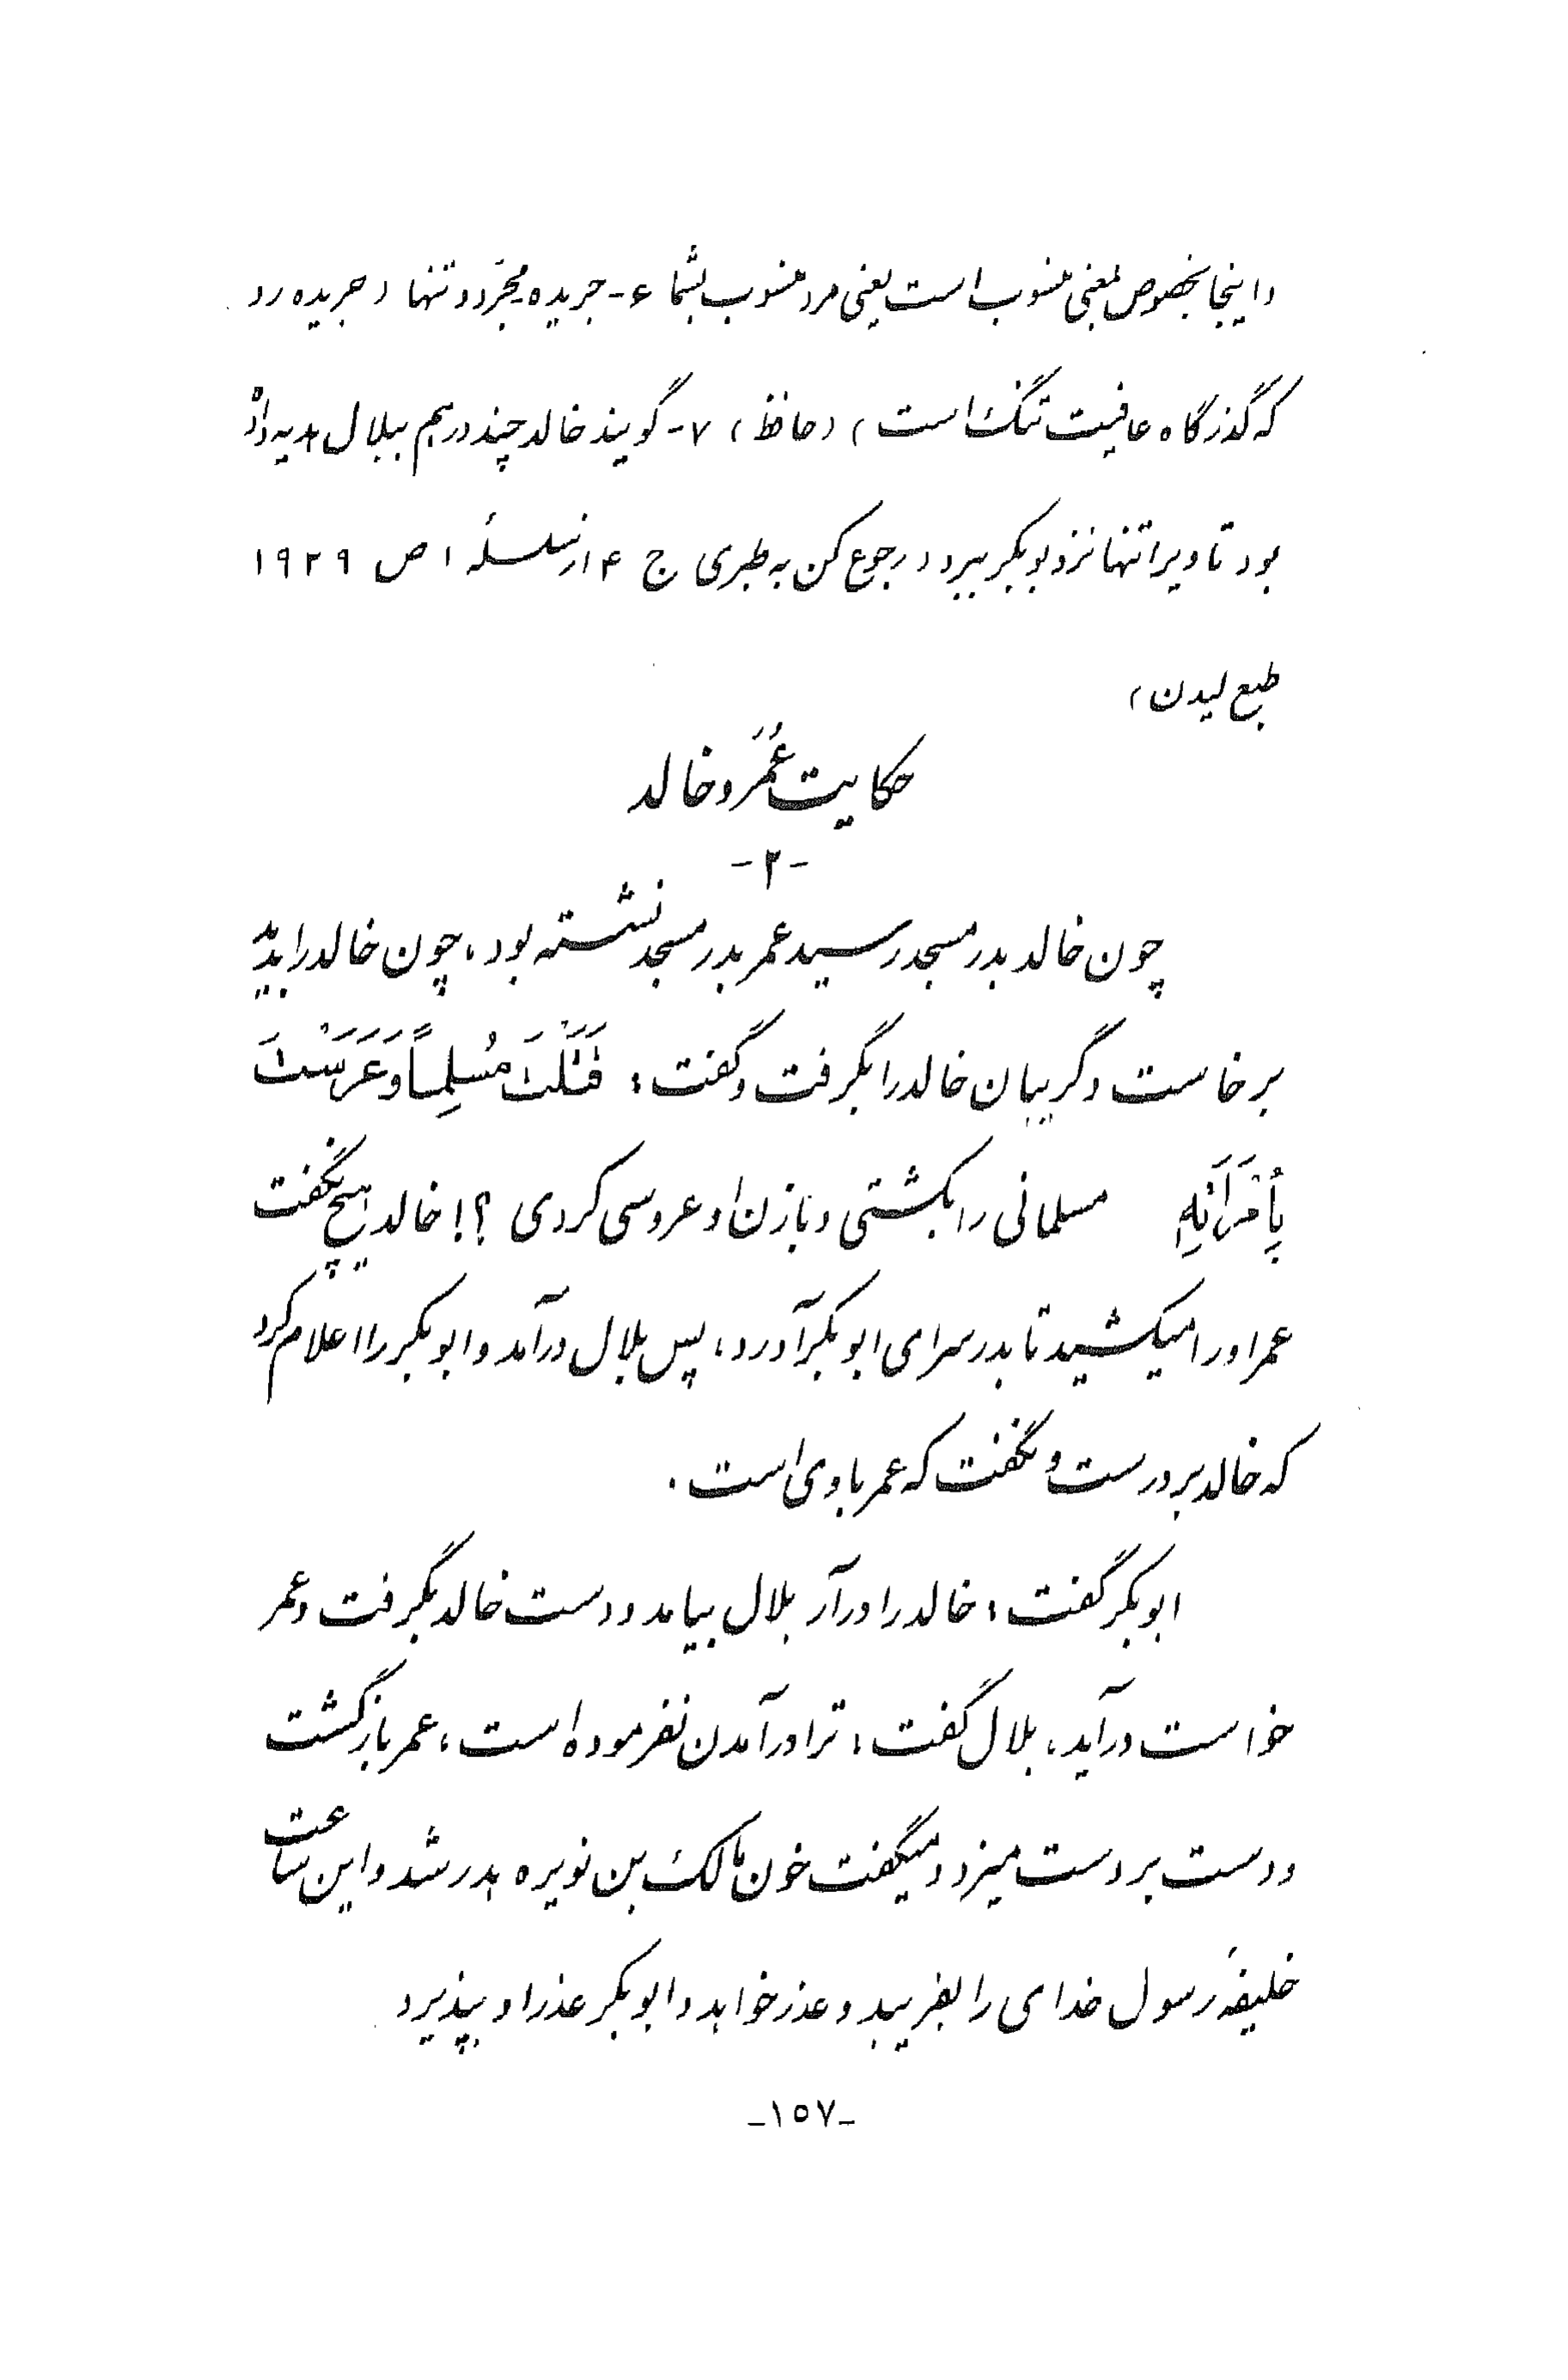 و اینجا بخصوص بمعنی منسوب است یعنی مرد منسوب بشما ۶- جریده - مجرّد و تنها ( جریده رو
که گذرگاه عافیت تنگ است ) ( حافظ ) ۷- گویند خالد چند درهم ببلال هدیه داده
بود تا ویرا تنها نزد بوبکر ببرد ( رجوع کن به طبری ج ۴ از سلسلهٔ ۱ ص ۱۹۲۹
طبع لیدن )
حکایت عُمَر و خالد
-۲-
چون خالد بدر مسجد رسید عمر بدر مسجد نشسته بود، چون خالد را بدید
برخاست و گریبان خالد را بگرفت و گفت: قَتَلْتَ مُسْلِماً وَ عَرَسْتَ
بِأُمْرَأَتِهِ مسلمانی را بکشتی و با زن او عروسی کردی ؟! خالد هیچ نگفت
عمر او را میکشید تا بدر سرای ابوبکر آورد، پس بلال درآمد و ابوبکر را اعلام کرد
که خالد بر درست و نگفت که عمر با وی است.
ابوبکر گفت: خالد را درآر بلال بیامد و دست خالد بگرفت و عمر
خواست درآید، بلال گفت: ترا درآمدن نفرموده است، عمر بازگشت
و دست بر دست میزد و میگفت خون مالک بن نویره هدر شد و این ساعت
خلیفهٔ رسول خدای را بفریبد و عذر خواهد و ابوبکر عذر او بپذیرد
-۱۵۷-